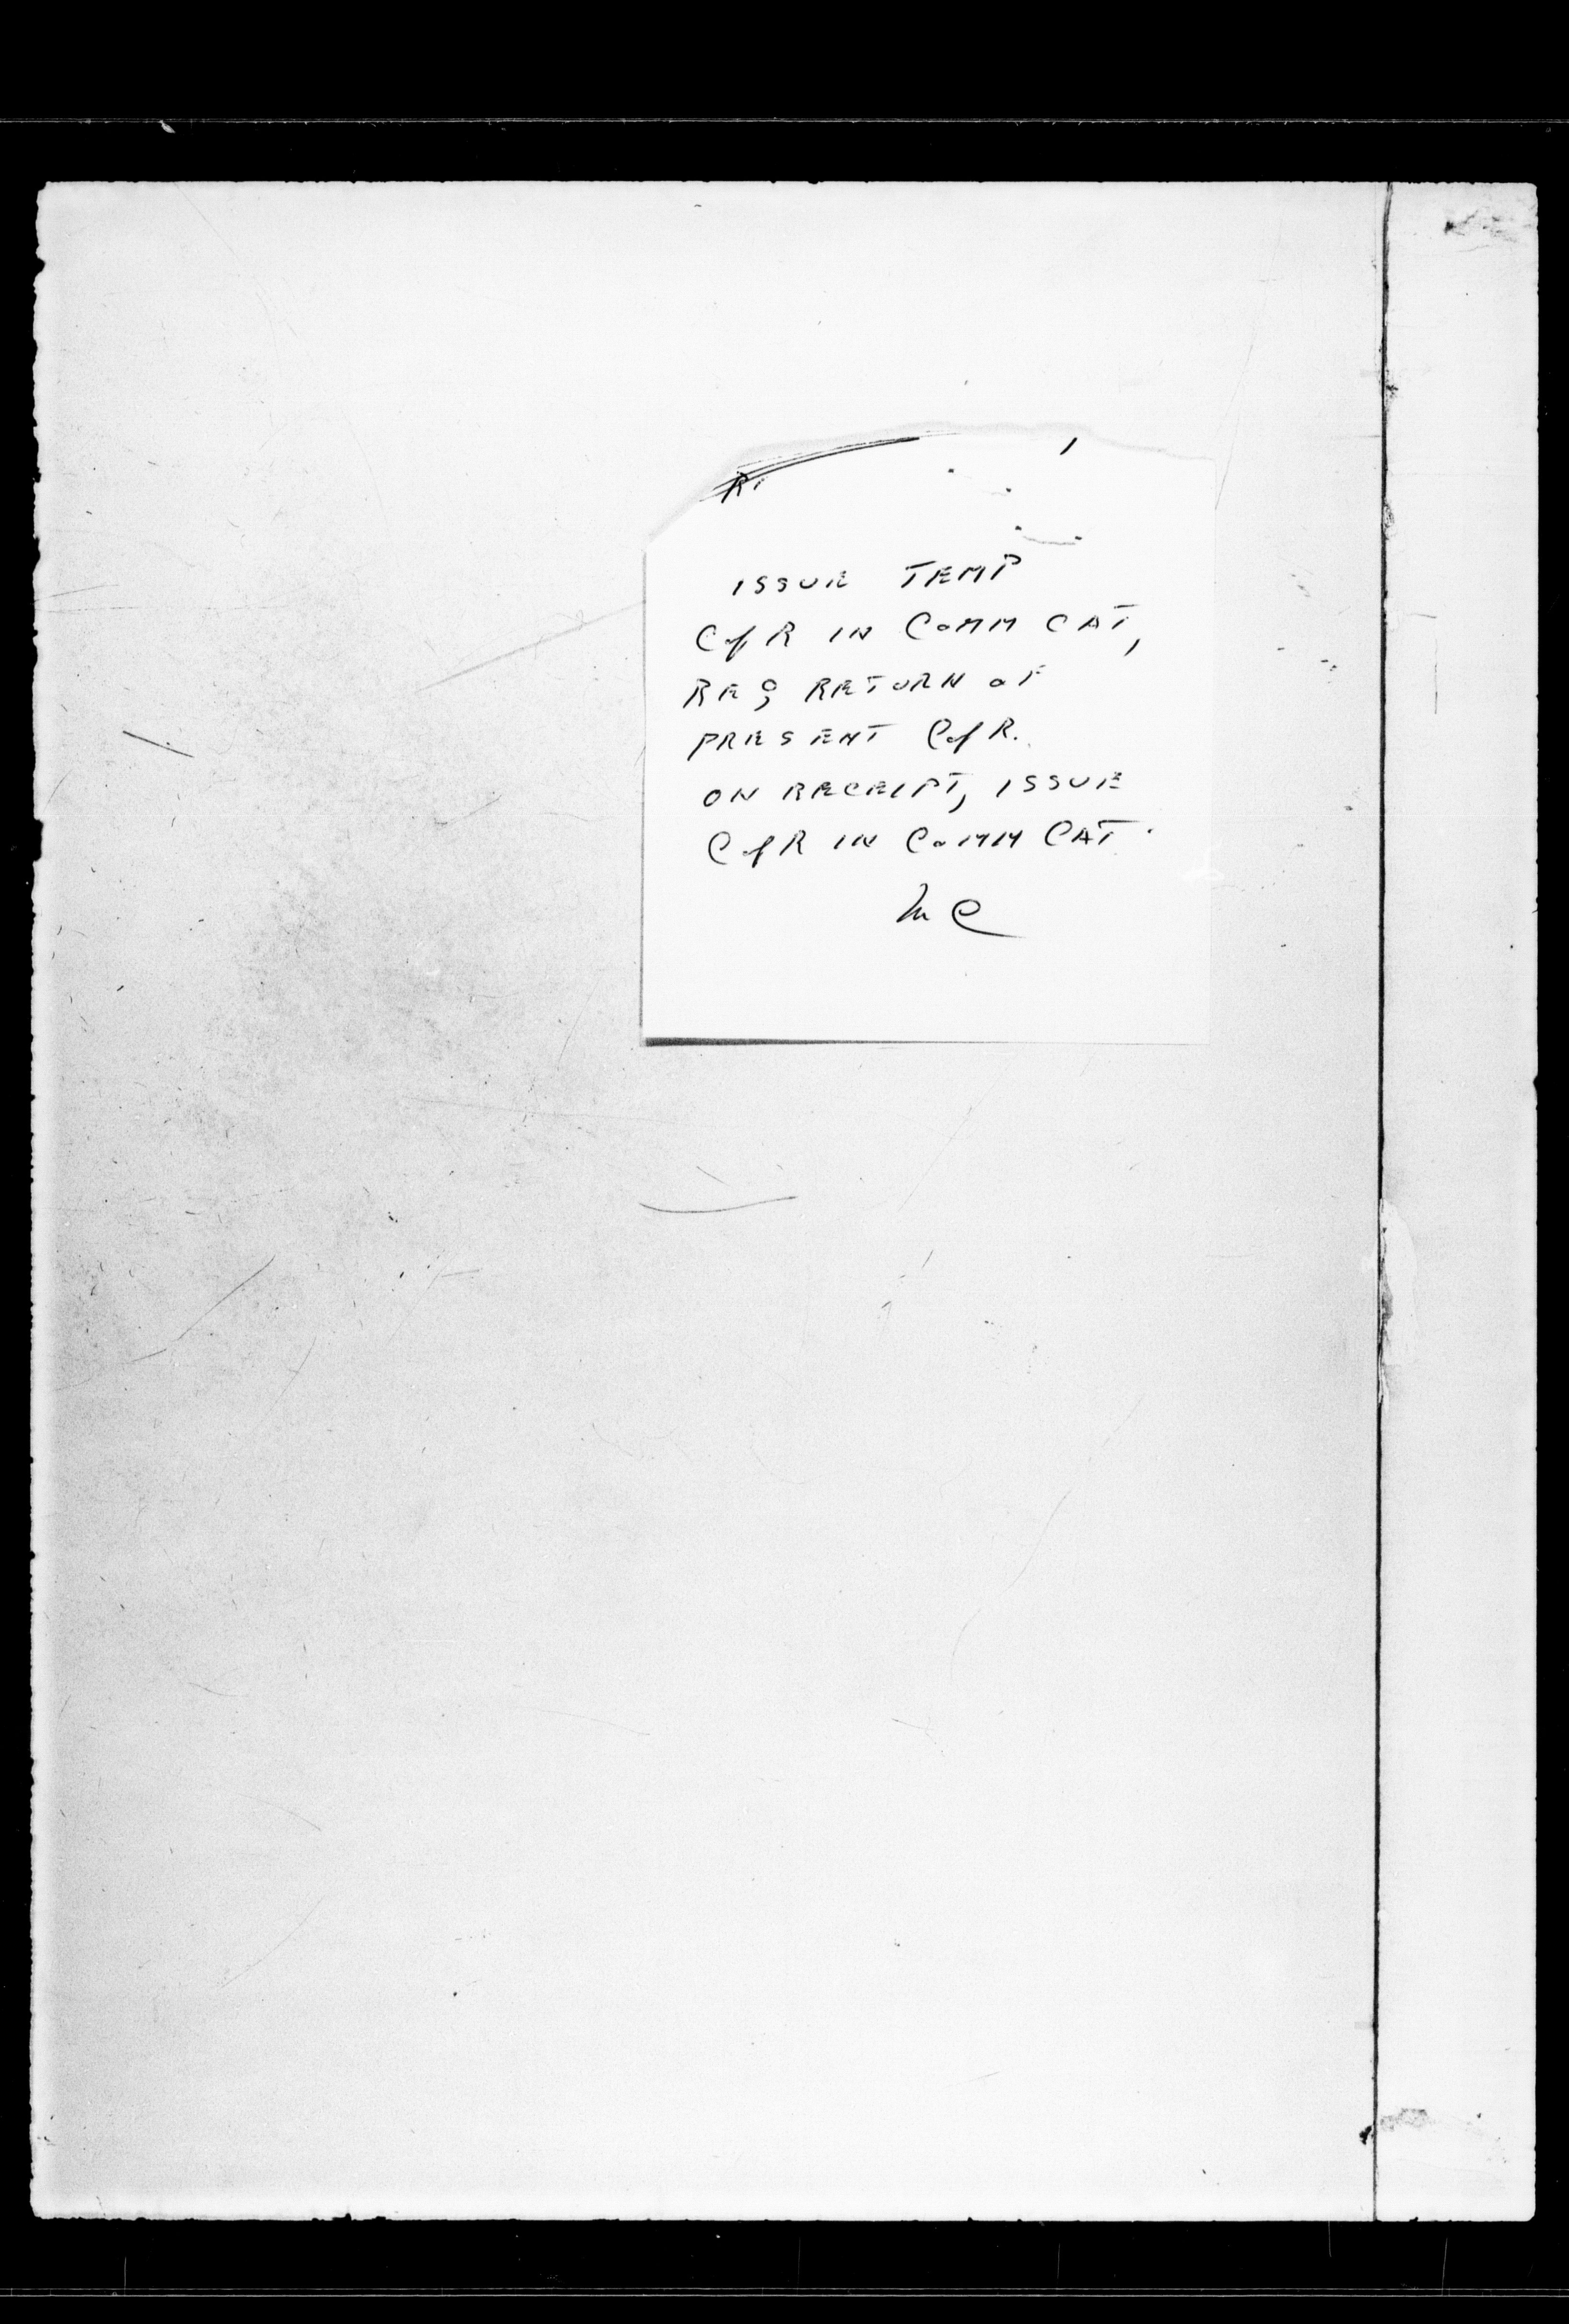 ISSUE TEMP
C of R IN COMM CAT,
REQ RETURN OF
PRESENT C of R.
ON RECEIPT, ISSUE
C of R IN COMM CAT.